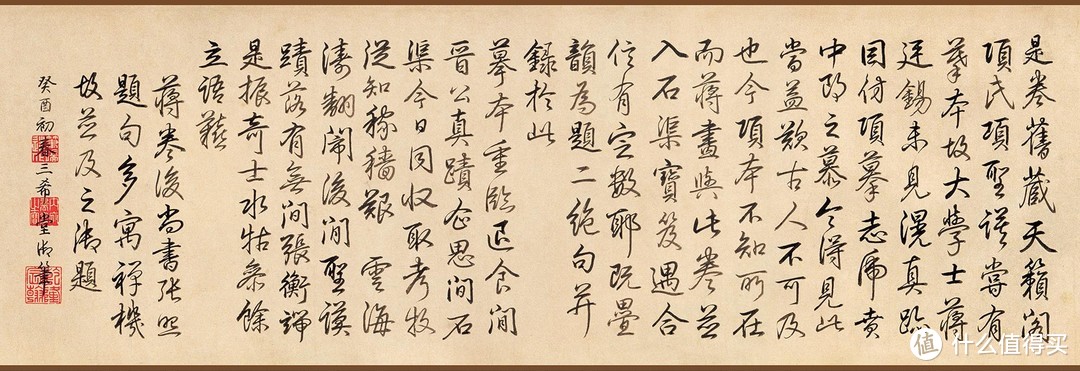 是卷舊藏天籟閣
項氏項聖謨嘗有
摹本故大學士蔣
廷錫未見滉真跡
因仿項摹志虎賁
中郎之慕今得見此
當益歎古人不可及
也今項本不知所在
而蔣畫與此卷並
入石渠寶笈遇合
信有定數耶既疊
韻為題二絕句并
錄於此
摹本重臨退食閒
晉公真蹟企思間石
渠今日同收取考牧
從知稼穡艱 雲海
濤翻鬧後閒聖謨
蹟落有無間張衡端
是振奇士水牯參餘
立語艱
蔣卷後尚書張照
題句多寓禪機
故並及之御題
癸酉初春三希堂御筆
值 什么值得买